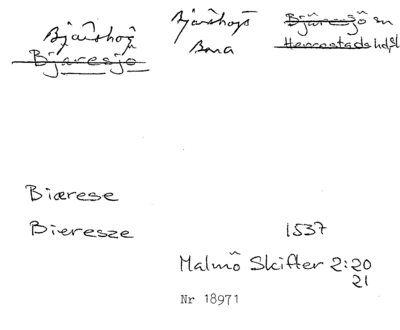 Bjärshög Bjärshögs Bjäresjö sn
Bjaresjö Bara Herrestads hd, sl
Biærese
Bieresze 1537
Malmö Skifter 2:20
21
Nr 18971